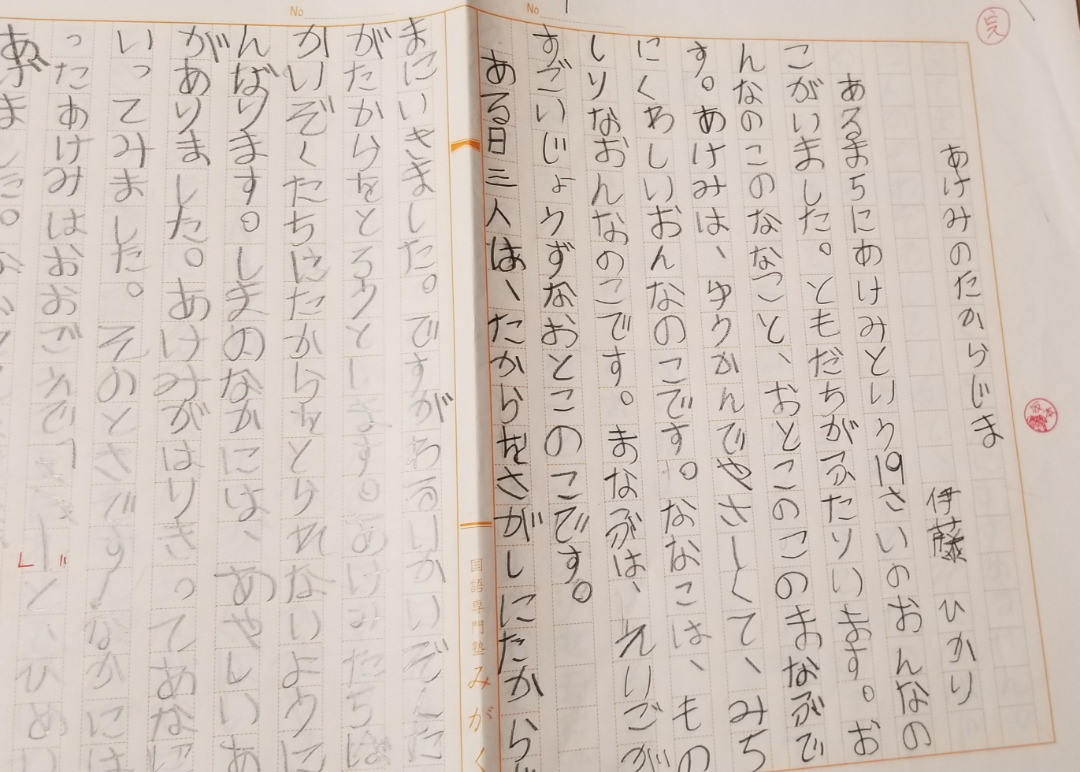 完
あけみのたからじま
伊藤 ひかり
あるまちにあけみとりう19さいのおんなの
こがいました。ともだちがふたりいます。お
んなのこのななこと、おとこのこのまなぶで
す。あけみは、ゆうかんでやさしくて、みち
にくわしいおんなのこです。ななこは、もの
しりなおんなのこです。まなぶは、えいごが
すごいじょうずなおとこのこです。
ある日三人は、たからをさがしにたからじ
No
No
国語専門塾みがく
まにいきました。ですがわるいかいぞくた
がたからをとろうとします。あけみたちは
かいぞくたちにたからをとられないように
んばります。しまのなかには、あやしいあ
がありました。あけみがはりきってあなに
いってみました。そのときです！なかには
ったあけみはおおごえで「 と、ひめい
あげました。な